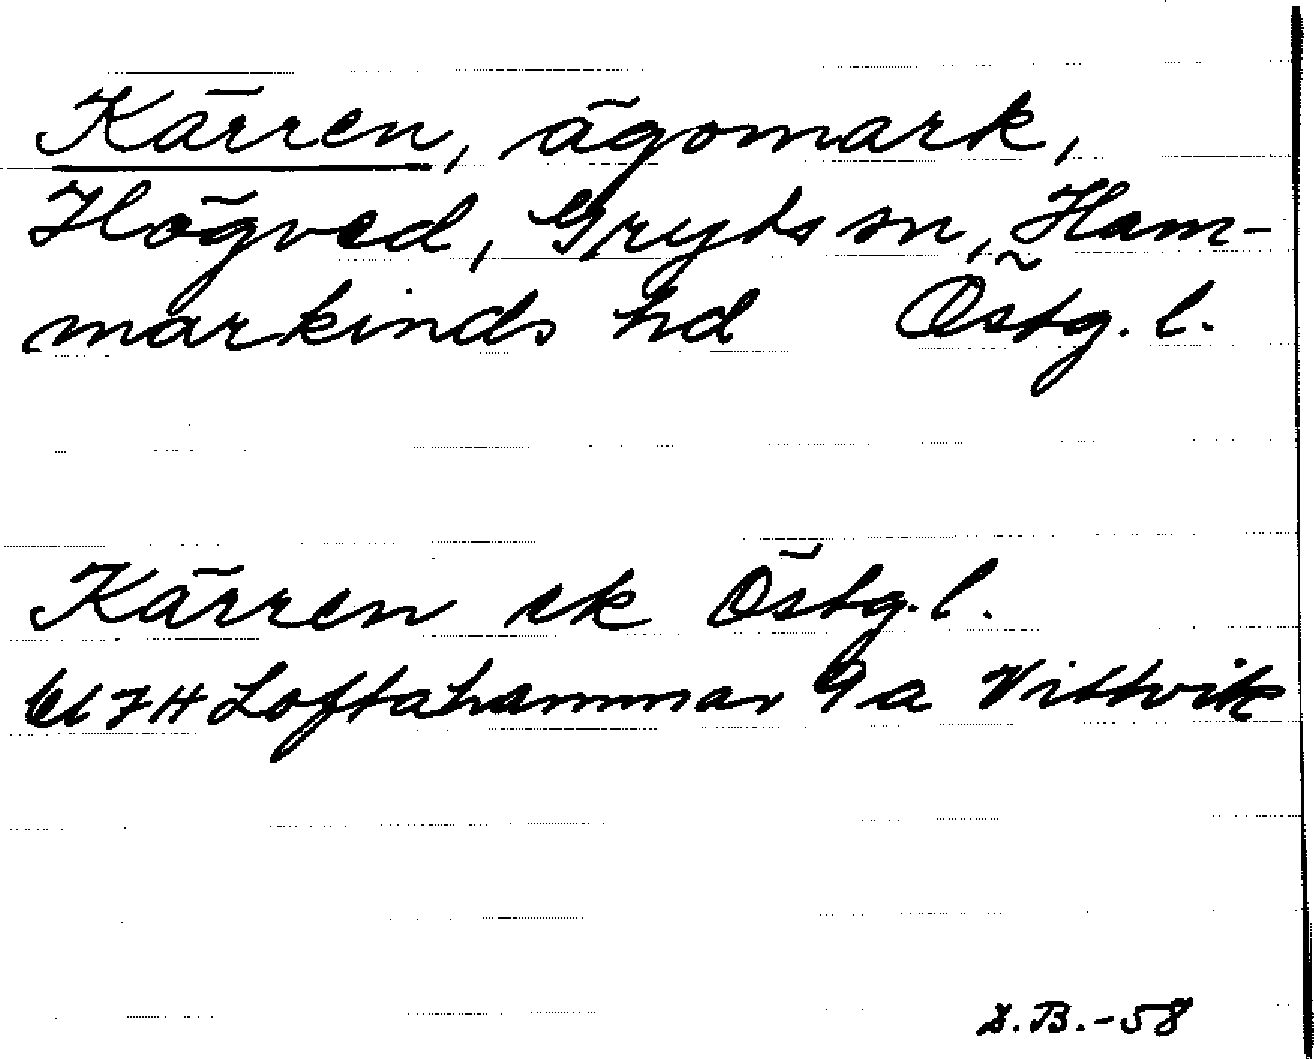 Kärren, ägomark,
Högved, Gryts sn, Ham-
markinds hd Östg. l.
Kärren ek Östg. l.
6l 7H Loftahammar 9a Vittvik
B.-58